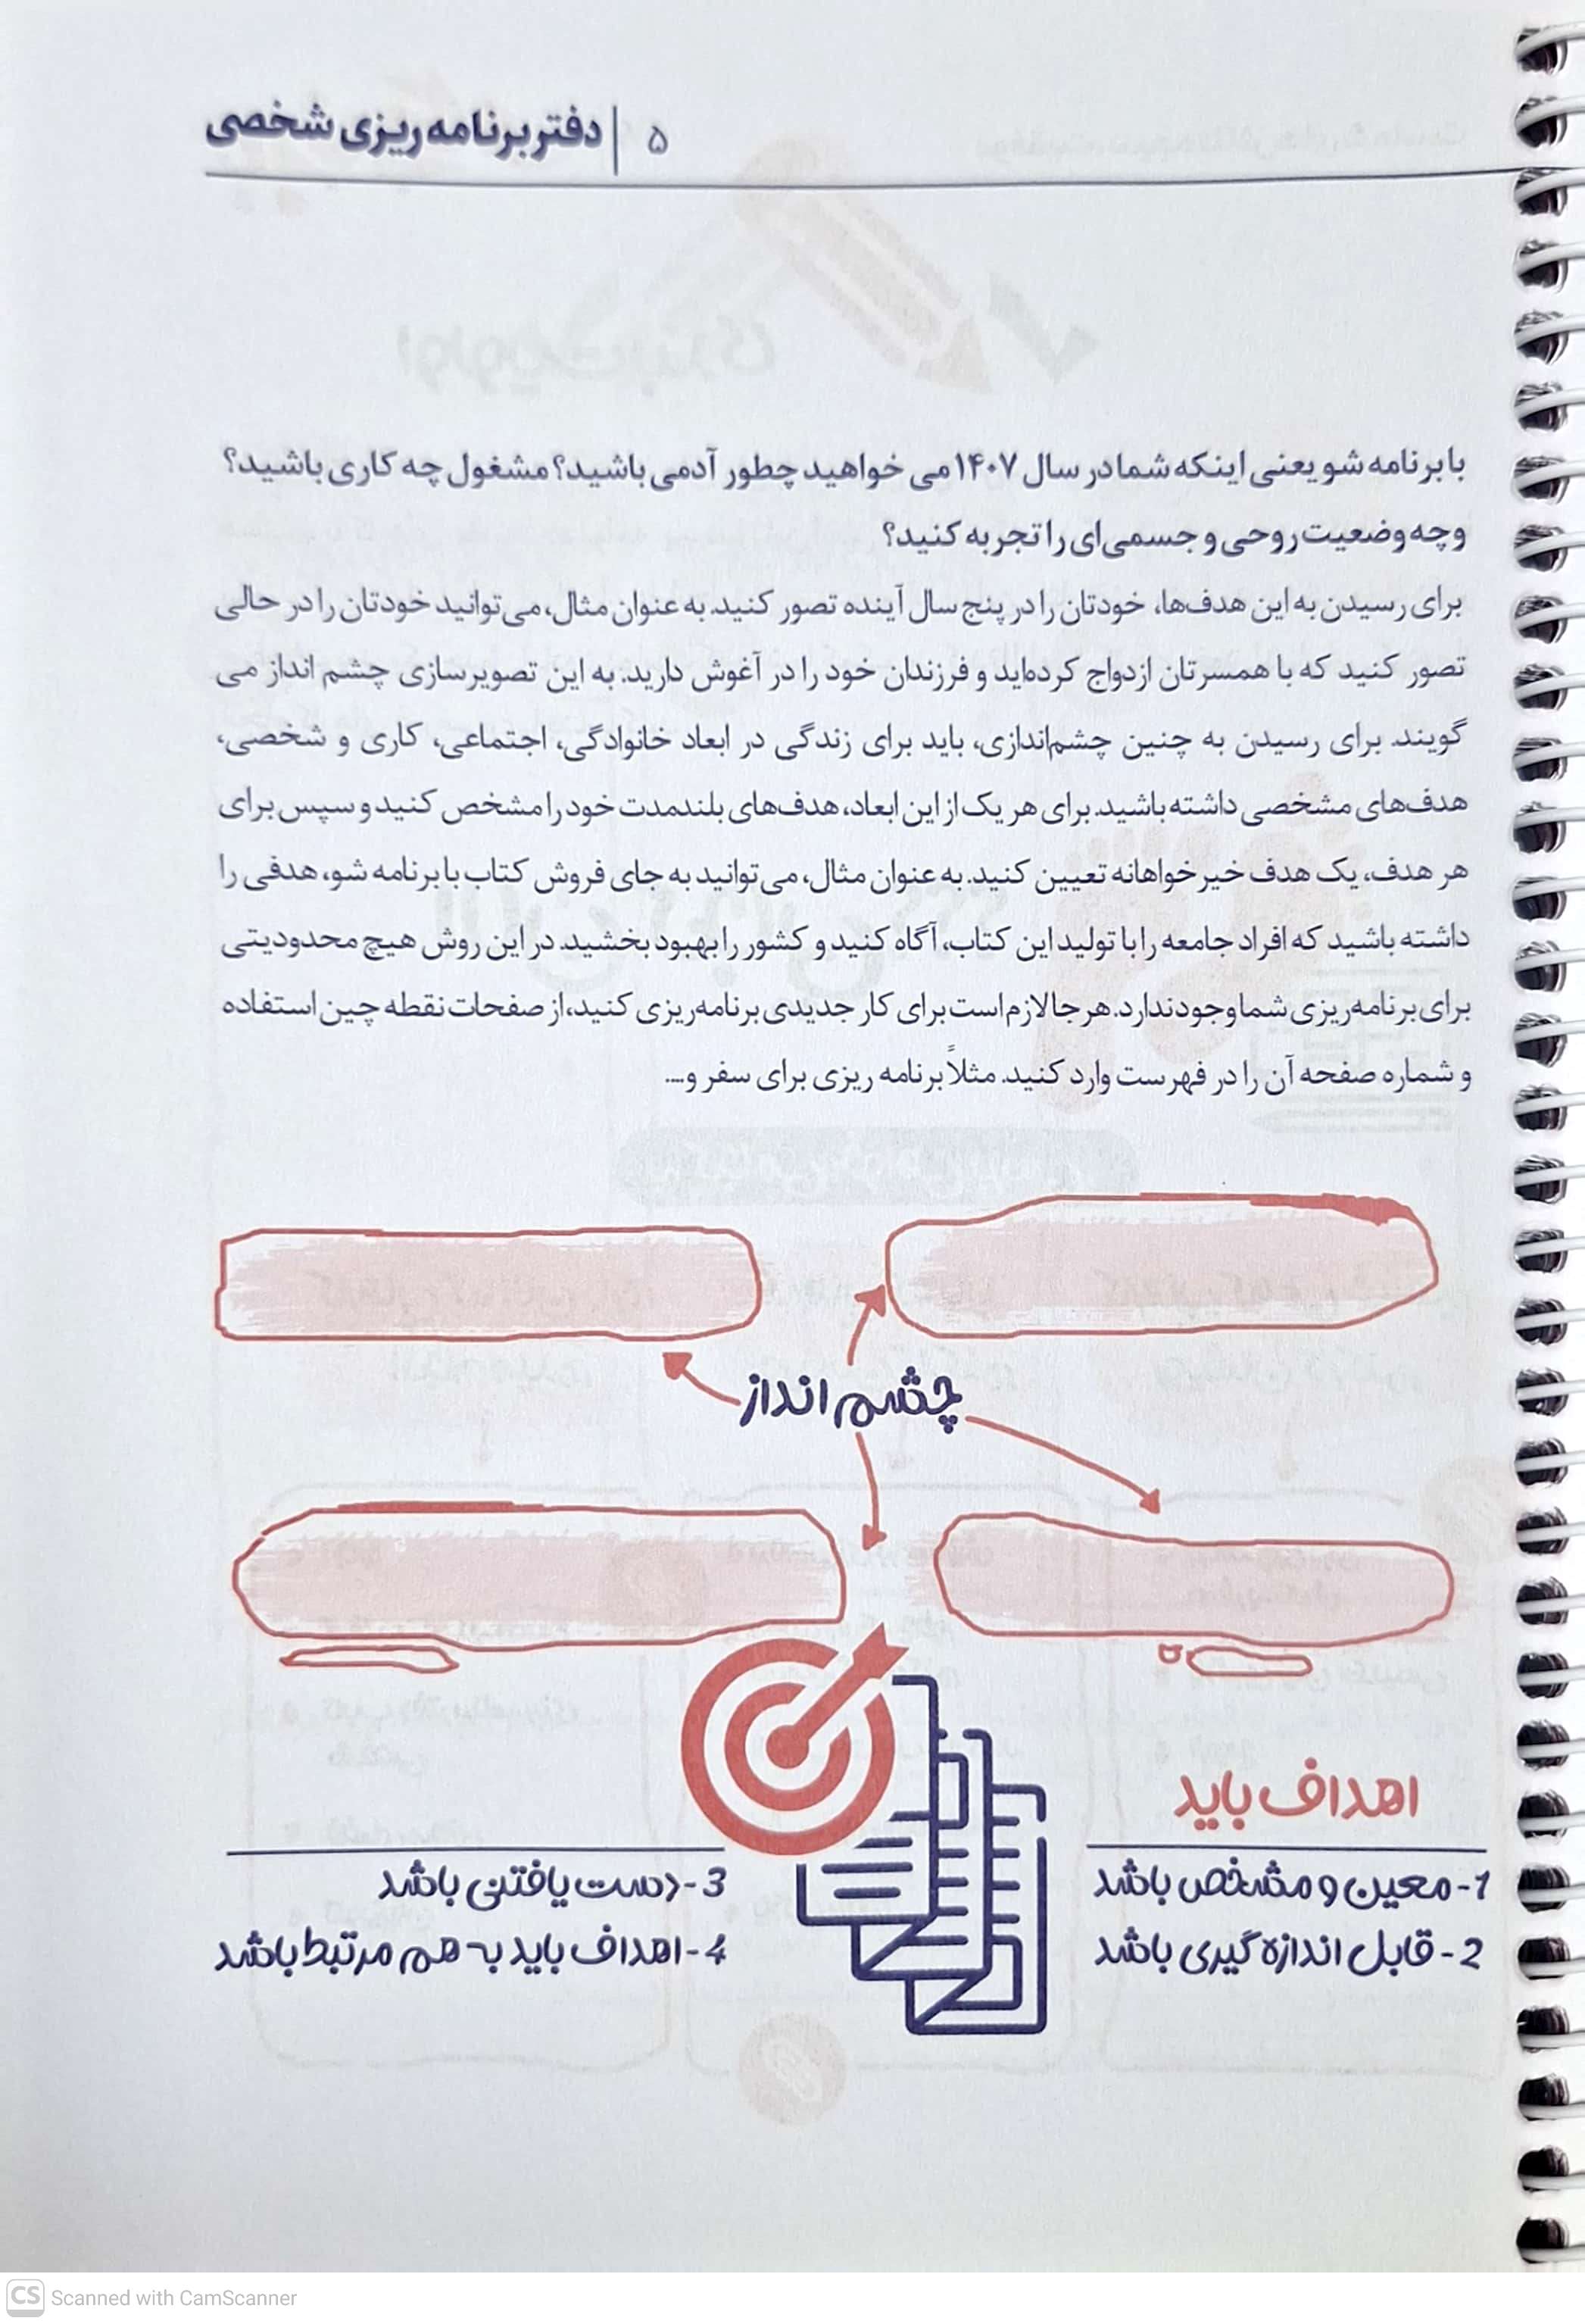 ۵ | دفتر برنامه ریزی شخصی
با برنامه شو یعنی اینکه شما در سال ۱۴۰۷ می خواهید چطور آدمی باشید؟ مشغول چه کاری باشید؟
و چه وضعیت روحی و جسمی‌ای را تجربه کنید؟
برای رسیدن به این هدف‌ها، خودتان را در پنج سال آینده تصور کنید. به عنوان مثال، می‌توانید خودتان را در حالی
تصور کنید که با همسرتان ازدواج کرده‌اید و فرزندان خود را در آغوش دارید. به این تصویرسازی چشم انداز می
گویند. برای رسیدن به چنین چشم‌اندازی، باید برای زندگی در ابعاد خانوادگی، اجتماعی، کاری و شخصی،
هدف‌های مشخصی داشته باشید. برای هر یک از این ابعاد، هدف‌های بلندمدت خود را مشخص کنید و سپس برای
هر هدف، یک هدف خیرخواهانه تعیین کنید. به عنوان مثال، می‌توانید به جای فروش کتاب با برنامه شو، هدفی را
داشته باشید که افراد جامعه را با تولید این کتاب، آگاه کنید و کشور را بهبود بخشید. در این روش هیچ محدودیتی
برای برنامه‌ریزی شما وجود ندارد. هر جا لازم است برای کار جدیدی برنامه‌ریزی کنید، از صفحات نقطه چین استفاده
و شماره صفحه آن را در فهرست وارد کنید. مثلاً برنامه ریزی برای سفر و....
چشم انداز
اهداف باید
1- معین و مشخص باشد
2- قابل اندازه گیری باشد
3- دست یافتنی باشد
4- اهداف باید به هم مرتبط باشد
CS Scanned with CamScanner